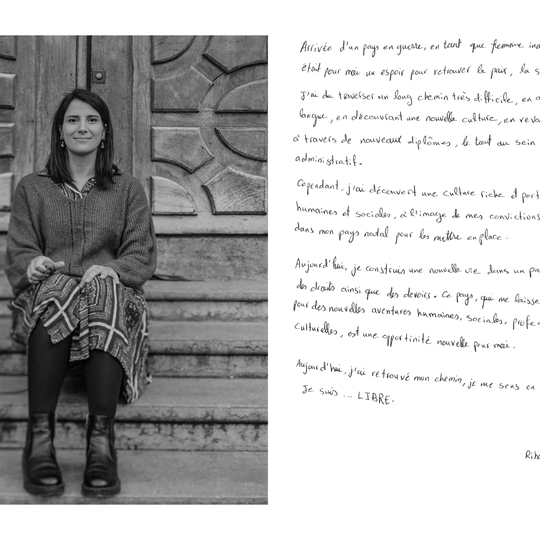 Arrivée d'un pays en guerre, en tant que femme
était pour moi un espoir pour retrouver la paix, la
J'ai dû traverser un long chemin très difficile, en
langue, en découvrant une nouvelle culture, en
à travers de nouveaux diplômes, le tout au sein
administratif.
Cependant, j'ai découvert une culture riche et
humaines et sociales, à l'image de mes convictions
dans mon pays natal pour les mettre en place.
Aujourd'hui, je construis une nouvelle vie dans un
des droits ainsi que des devoirs. Ce pays, que me laisse
pour des nouvelles aventures humaines, sociales,
culturelles, est une opportunité nouvelle pour moi.
Aujourd'hui, j'ai retrouvé mon chemin, je me sens en
Je suis ... LIBRE.